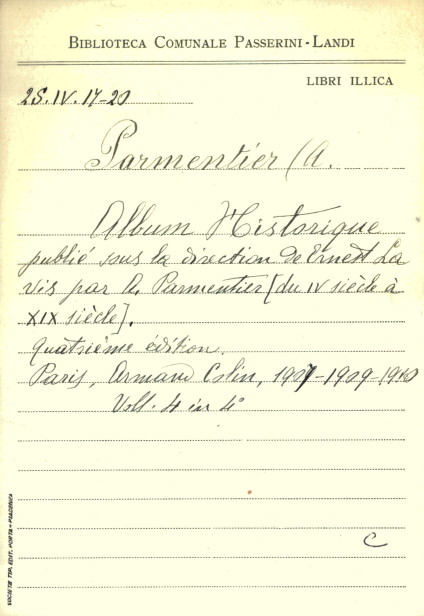 BIBLIOTECA COMUNALE PASSERINI-LANDI
LIBRI ILLICA
2S.IV.17-20
Parmentier (A.
Album Historique
publié sous la direction de Ernest La
vis par A. Parmentier [du IV siècle à
XIX siècle].
Quatrième édition.
Paris, Armand Colin, 1907-1909-1910
Voll. 4 in 4°
C
SOCIETÀ TIP. EDIT. PORTA - PIACENZA